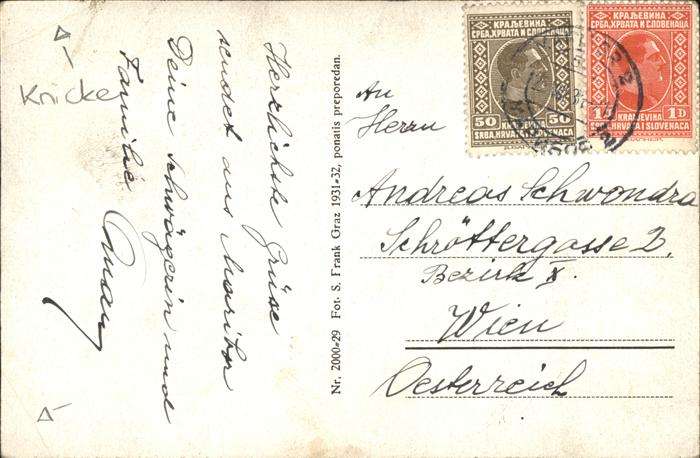 Herzlichste Grüse
sendet aus Maribor
Deine Schwägerin und
Familie
Knicke
Nr. 2000-29 Fot. S. Frank Graz 1931-32, ponatis preporedan.
An
Herrn
Andreas Schwondra
Schröttergasse 2,
Bezirk X.
Wien
Oesterreich
КРАЉЕВИНА
СРБА, ХРВАТА И СЛОВЕНАЦА
50 50
KRALJEVINA
SRBA, HRVATA I SLOVENACA
КРАЉЕВИНА
СРБА, ХРВАТА И СЛОВЕНАЦА
1D
KRALJEVINA
SRBA, HRVATA I SLOVENACA